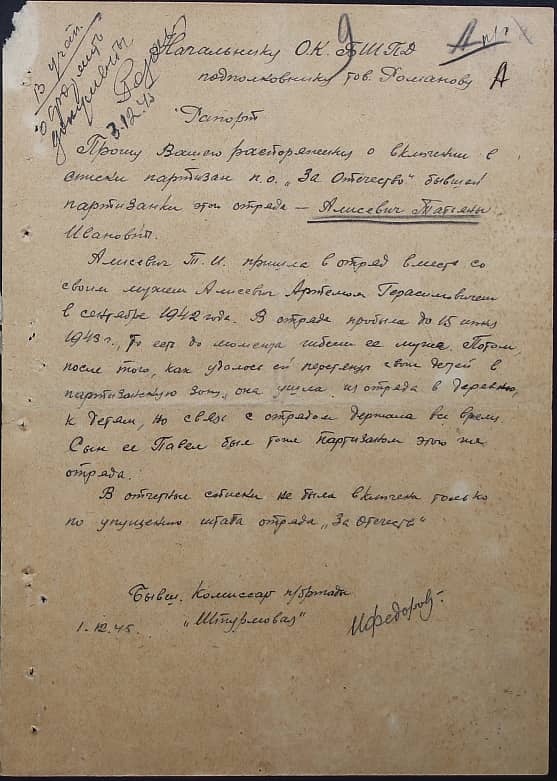 В учёт.
документы
3.12.45
9
А
Начальнику О.К. БШПД
подполковнику тов. Романову
А
Рапорт
Прошу Вашего распоряжения о включении в
списки партизан п.о. „За Отечество" бывшей
партизанки этого отряда – Алисевич Татьяны
Ивановны.
Алисевич Т.И. пришла в отряд вместе со
своим мужем Алисевич Артемом Герасимовичем
в сентябре 1942 года. В отряде пробыла до 15 июня
1943 г., до момента гибели ее мужа. Потом
после того, как удалось ей перевезти своих детей в
партизанскую зону, она ушла из отряда в деревню,
к детям, но связь с отрядом держала все время.
Сын ее Павел был тоже партизаном этого же
отряда.
В отчетные списки не была включена только
по упущению штаба отряда „За Отечеств"
Бывш. Комиссар п/бригады
1.12.45. „Штурмовая" Ифедоров